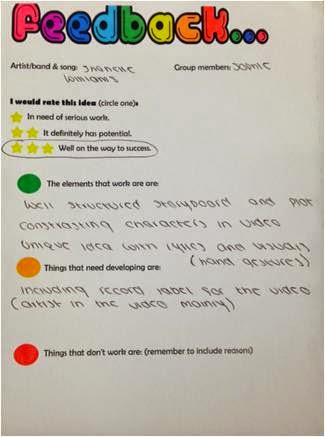 Feedback...
Artist/band & song: Shanelle Group members: Jasmic
Williams
I would rate this idea (circle one):
In need of serious work.
It definitely has potential.
Well on the way to success.
The elements that work are are:
Well structured storyboard and plot
Constrasting characters in video
Unique idea with lyrics and visuals
(hand gestures)
Things that need developing are:
Including record label for the video
(artist in the video mainly)
Things that don't work are: (remember to include reasons)